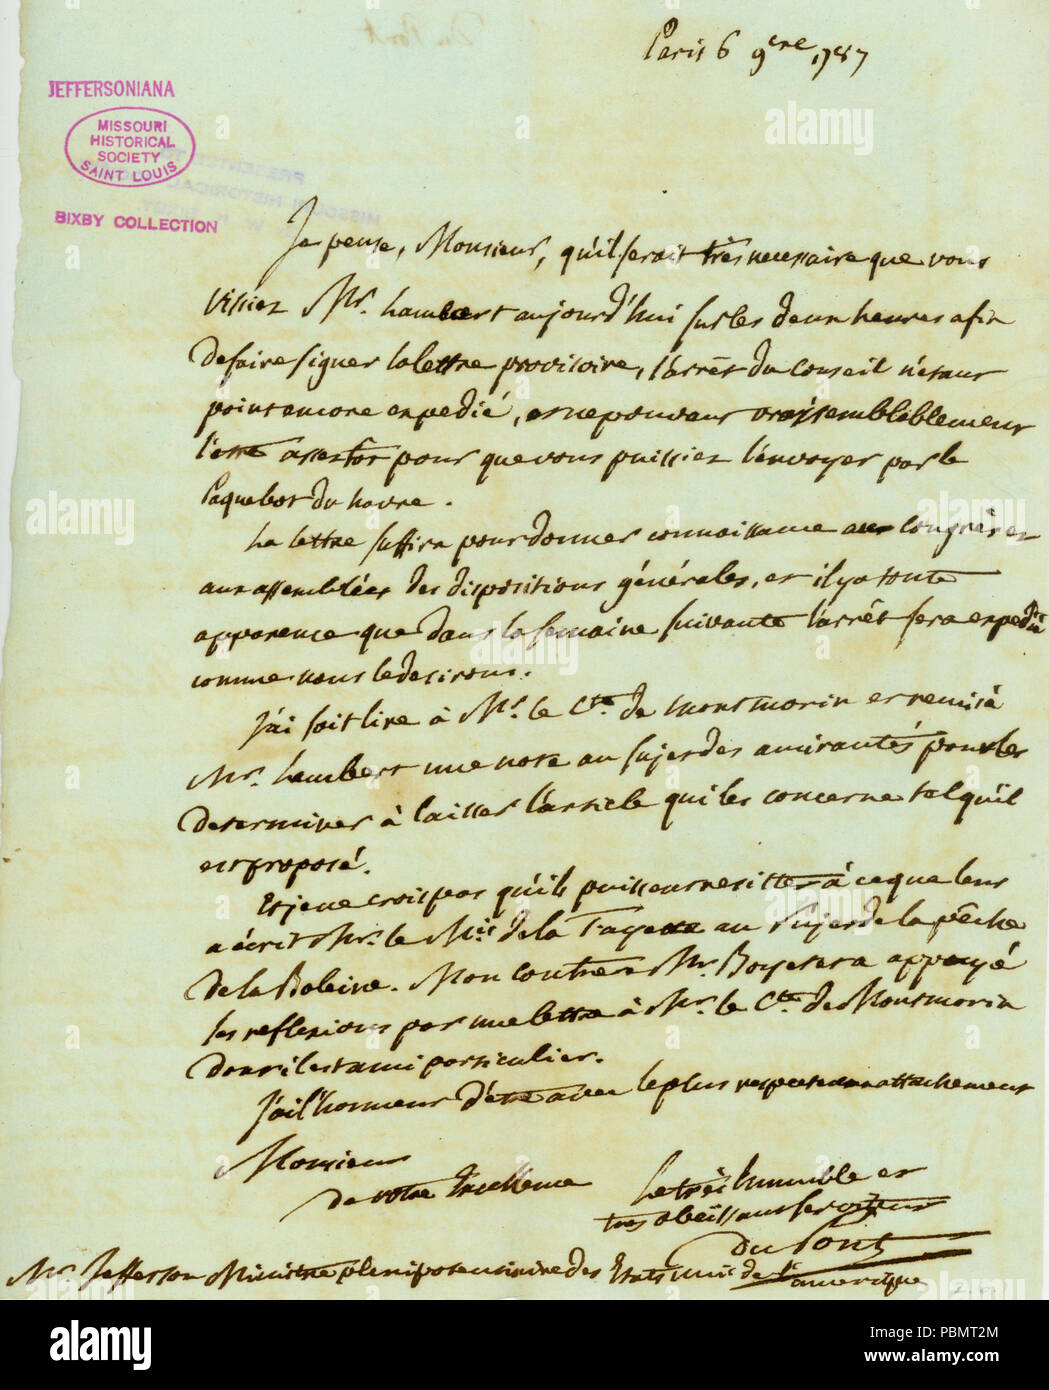 Paris 6 9ere 1787
JEFFERSONIANA
MISSOURI
HISTORICAL
SOCIETY
SAINT LOUIS
BIXBY COLLECTION
Je pense, Monsieur, qu'il serait très necessaire que vous
vissiez Mr. Lambert aujourd'hui sur les deux heures afin
de faire signer la lettre provisoire, l'arrêt du Conseil n'étant
point encore expedié, et ne pouvant vraisemblablement
l'être assez tôt pour que vous puissiez l'envoyer par le
Paquebot du havre.
La lettre suffira pour donner connaissance au Congrès et
aux assemblées des dispositions générales, et il y a toute
apparence que dans la semaine suivante l'arrêt sera expedié
comme nous le desirons.
J'ai fait lire à Mr. le Cte. de Montmorin et remis à
Mr. Lambert une note au sujet des amirautés pour les
determiner à laisser l'article qui les concerne tel qu'il
est proposé.
Et je ne crois pas qu'ils puissent resister à ce que leur
a écrit Mr. le Mis de la Fayette au sujet de la pêche
de la Baleine. Mon Confrere Mr. Boyetet a appuyé
les reflexions par une lettre à Mr. le Cte. de Montmorin
dont il est ami particulier.
J'ai l'honneur d'être avec le plus respectueux attachement
Monsieur
de votre Excellence
Le très humble et
très obeissant serviteur
Du Pont
Mr. Jefferson Ministre plenipotentiaire des Etats unis de l'amerique
alamy
PBMT2M
www.alamy.com